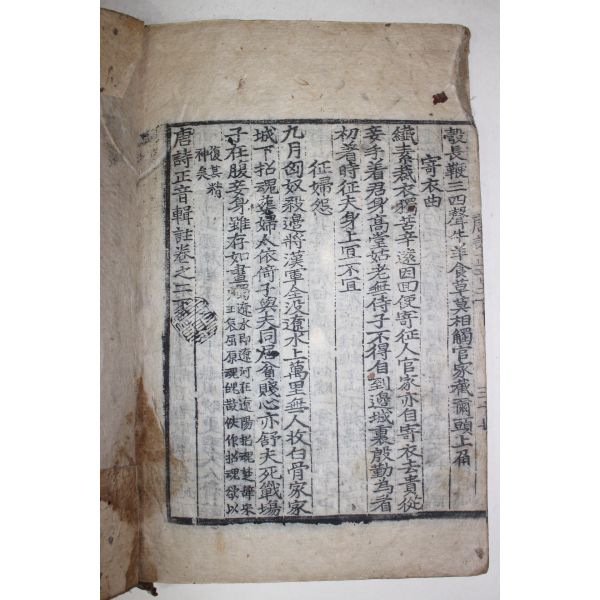 鼓長鞭三四聲牛羊食草莫相觸官家截爾頭上角
寄衣曲
纖素縫衣獨苦辛遠因回使寄征人官家亦自寄衣去貴從
妾手着君身高堂姑老無侍子不得自到邊城裏殷勤為看
初着時征夫身上宜不宜
征婦怨
九月匈奴殺邊將漢軍全沒遼水上萬里無人收白骨家家
城下招魂葬婦人依倚子與夫同居貧賤心亦舒夫死戰場
子在腹妾身雖存如晝燭遼水即遼河在遼陽招魂楚辭宋
玉哀屈原魂魄散佚作招魂欲以
復其精
神矣
唐詩正音輯註卷之二下